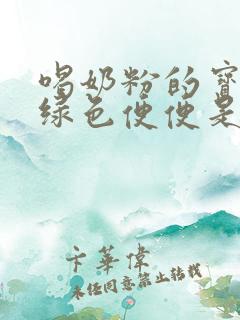 喝奶粉的宝
绿色便便是
卞華偉
未经同意禁止转载